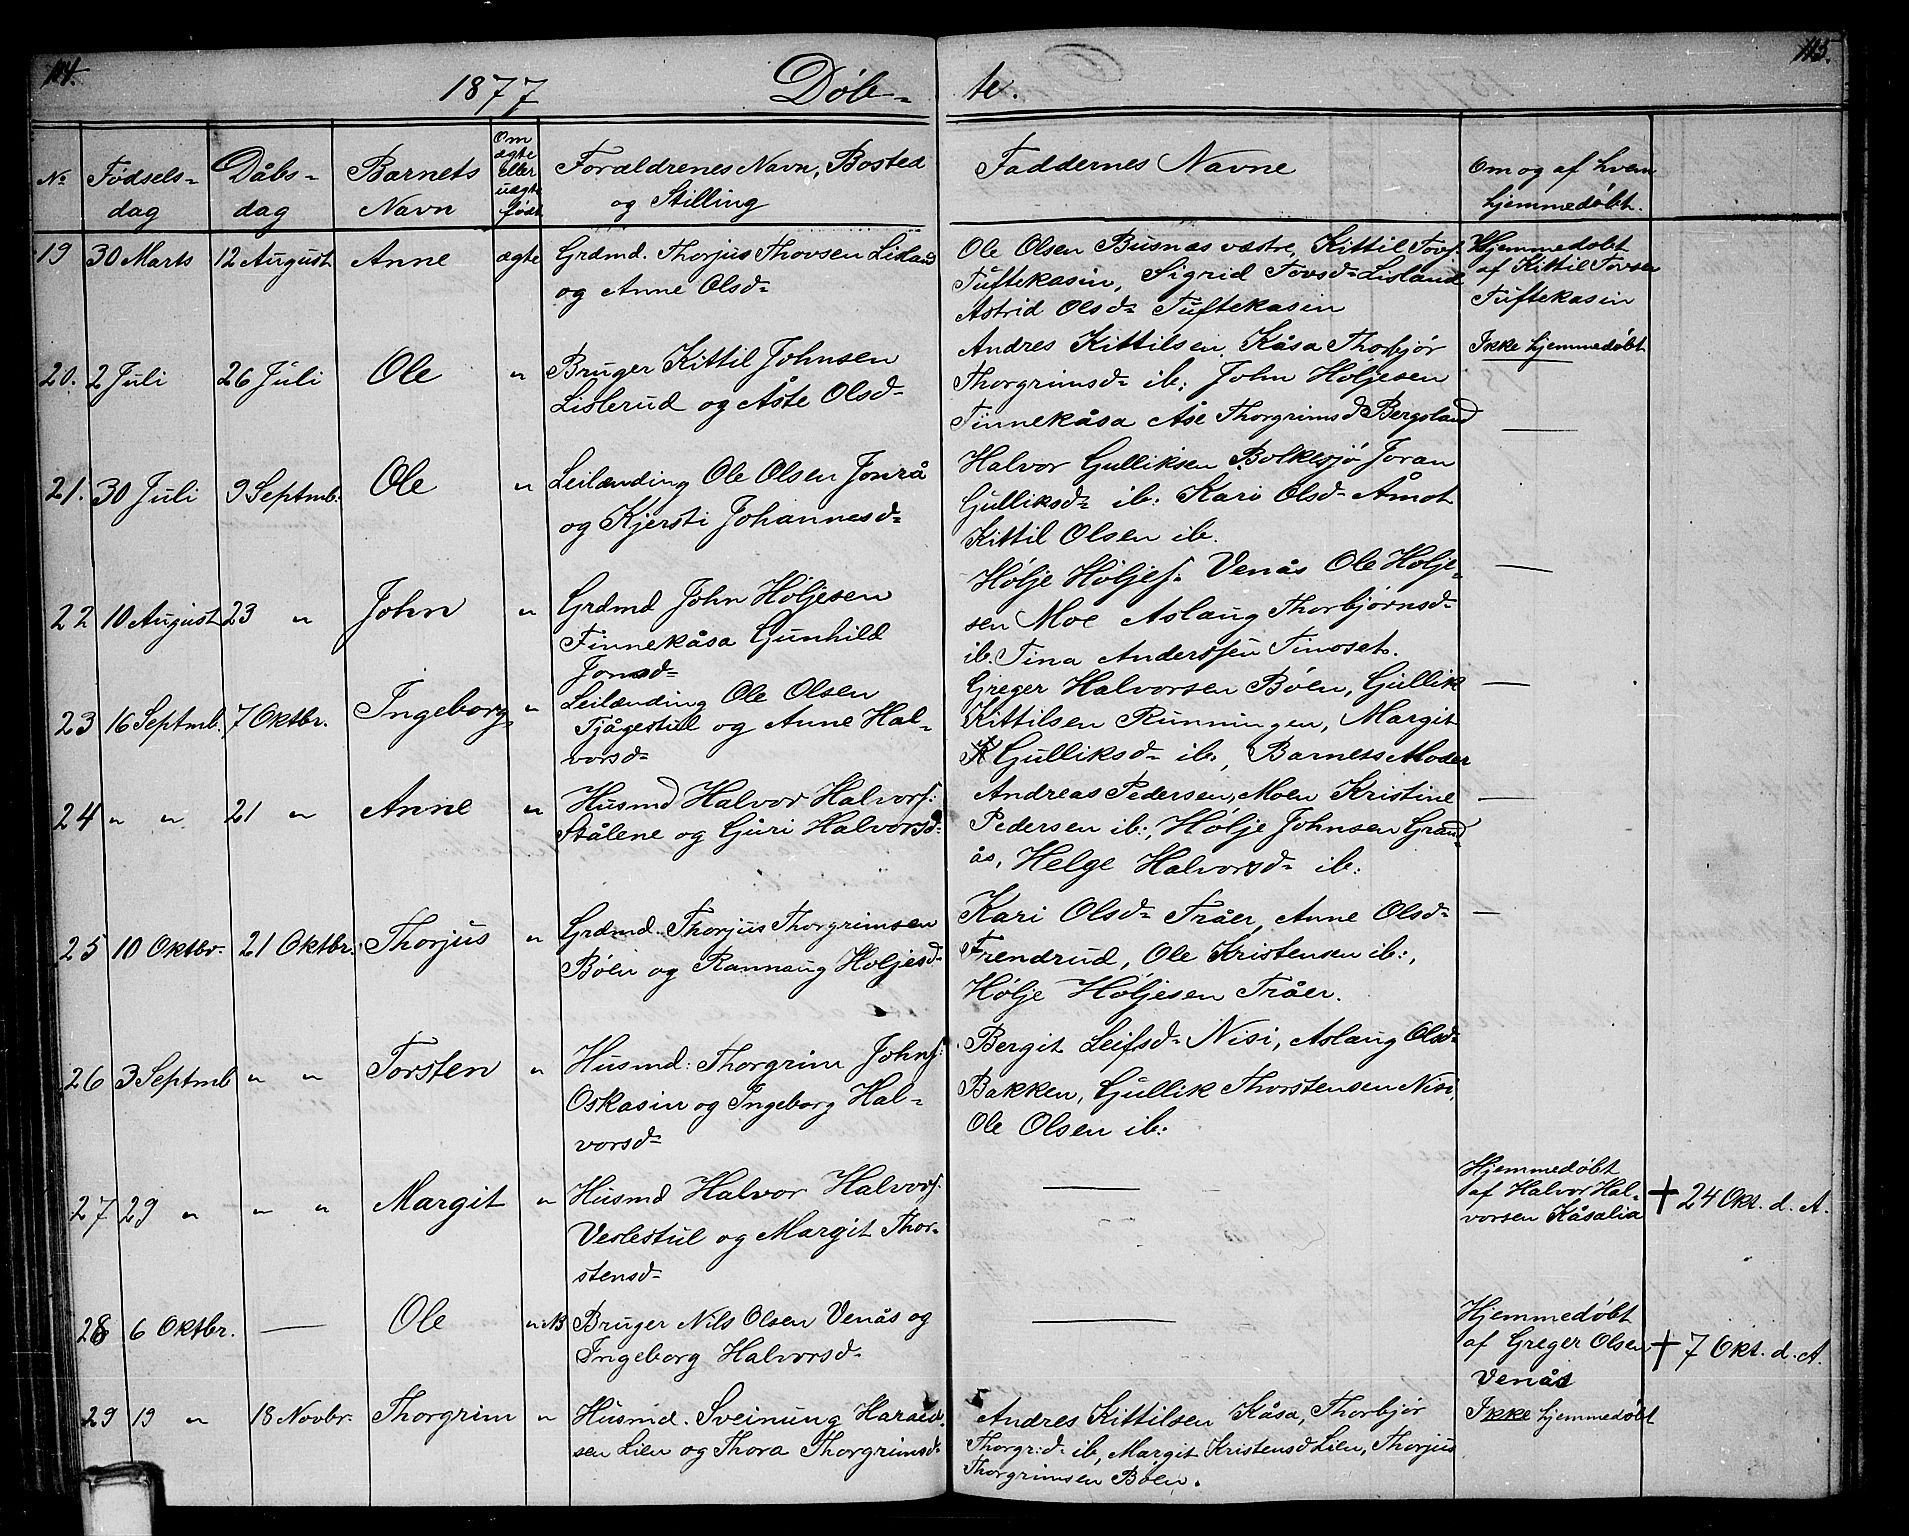 114.
1877
Døb-
te.
115.
No
Fødsels-
dag
Dåbs-
dag
Barnets
Navn
Om
ægte
eller
uægte
født
Forældrenes Navn, Bosted
og Stilling
Faddernes Navne
Om og af hvem
hjemmedøbt.
19 30 Marts 12 August Anne ægte
Grdmd. Thorjus Thovsen Lisland
og Anne Olsd-
Ole Olsen Busnæs væstre, Kittil Tovs.
Tuftekasin, Sigrid Tovsd- Lisland
Astrid Olsd- Tuftekasin
Hjemmedøbt
af Kittil Tovsen
Tuftekasin
20. 2 Juli 26 Juli Ole "
Bruger Kittil Johnsen
Lislerud og Åste Olsd-
Andres Kittilsen Kåsa Thorbjør
Thorgrimsd- ib: John Høljesen
Finnekåsa Åse Thorgrimsd Bergsland
Ikke hjemmedøbt
21. 30 Juli 9 Septmb. Ole "
Leilænding Ole Olsen Jonrå
og Kjersti Johannesd-
Halvor Gulliksen Bolkesjø Joran
Gulliksd- ib: Kari Olsd- Åmot
Kittil Olsen ib.
—
22 10 August 23 " John "
Grdmd John Høljesen
Finnekåsa Gunhild
Jonsd-
Hølje Høljes. Venås Ole Holje-
sen Moe Aslaug Thorbjørnsd-
ib. Tina Anderssen Tinoset.
—
23 16 Septmb. 7 Oktbr. Ingeborg "
Leilænding Ole Olsen
Tjågestul og Anne Hal-
vorsd-
Greger Halvorsen Bøen, Gullik
Kittilsen Runningen, Margit
Gulliksd- ib., Barnets Moder
—
24 " " 21 " Anne "
Husmd Halvor Halvors:
Stålene og Guri Halvorsd-
Andreas Pedersen, Moen Kristine
Pedersen ib:, Hølje Johnsen Grand-
ås, Helge Halvorsd- ib:
—
25 10 Oktbr. 21 Oktbr. Thorjus "
Grdmd. Thorjus Thorgrimsen
Bøen og Rannaug Holjesd-
Kari Olsd- Tråer, Anne Olsd-
Frendrud, Ole Kristensen ib:,
Hølje Høljesen Tråer.
—
26 3 Septmb " " Torsten "
Husmd: Thorgrim Johns:
Oskasin og Ingeborg Hal-
vorsd-
Bergit Leifsd- Nisi, Aslaug Olsd-
Bakken, Gullik Thorstensen Nisi,
Ole Olsen ib:
27 29 " " " Margit "
Husmd Halvor Halvors.
Veslestul og Margit Thor-
stensd-
—
Hjemmedøbt
af Halvor Hal-
vorsen Kåsalia
† 24 Okt. d. A.
28 6 Oktbr. — Ole " NB
Bruger Nils Olsen Venås og
Ingeborg Halvorsd-
—
Hjemmedøbt
af Greger Olsen
Venås
† 7 Okt. d. A.
29 19 " 18 Novbr. Thorgrim "
Husmd. Sveinung Harald-
sen Lien og Thora Thorgrimsd-
Andres Kittilsen Kåsa, Thorbjør
Thorgr:d- ib, Margit Kristensd Lien, Thorjus
Thorgrimsen Bøen.
Ikke hjemmedøbt